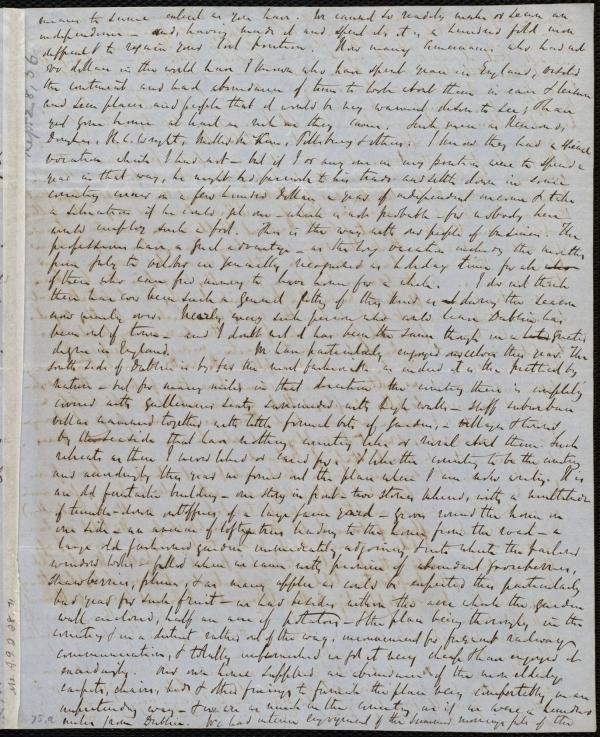 means to secure such as you have. We cannot so readily make or earn an
independence – and, having made it and spend it, it is a hundred fold more
difficult to regain your lost position. How many Americans who had not
500 dollars in the world have I known who have spent years in England, visited
the continent and had abundance of time to look about them in ease & leisure
and seen places and people that it would be my warmest desire to see; & have
yet gone home as rich as they came. Such men as Remond,
Douglass, H. C. Wright, Pillsbury & others. I know they had a special
vocation which I had not – but if I or any one in my position were to spend a
year in that way, he might bid farewell to his trade and settle down in some
country corner on a few hundred dollars a year of independent income & take
a situation if he could get one – which is not probable – for nobody here
would employ such a fool. This is the way with our people of business. The
professions have a great advantage – as the long vacation including the months
from July to October is generally recognised as holiday time for all
of them who can find money to leave home for a while. I do not think
there has ever been such a general of they kind as during the season
now nearly over. Nearly every such person who could leave Dublin has
been out of town – and I doubt not it has been the same though in a greater
degree in England. We have particularly enjoyed ourselves this year. The
south side of Dublin is by far the most fashionable as indeed it is the prettiest by
nature – but for many miles in that direction the country there is completely
covered with gentlemen's seats surrounded with high walls – stiff suburban
villas crammed together with little formal bits of garden, – villages & towns
by the seaside that have nothing country like or rural about them. Such
retreats as these I never liked or cared for. I like the country to be the country
and accordingly this year we found out the place where I am now writing. It is
an old fantastic building – one story in front – two stories behind, with a multitude
of tumble-down outoffices of a large farm yard – given round the house on
one side – an avenue of lofty trees leading to the house from the road – a
large old fashioned garden immediately adjoining & into which the parlour
window looks – filled when we came with promise of abundant gooseberries,
strawberries, plums, & as many apples as could be expected this particularly
bad year for such fruit – we had besides within this acre which the garden
wall enclosed, half an acre of potatoes – & the place being thoroughly in the
country, & in a district rather out of the way, inconvenient for frequent railway
communication, & totally unfurnished we got it very cheap & have enjoyed it
amazingly. Our own house supplied an abundance of the more elderly
carpets, chairs, beds & other fixings to furnish the place very comfortably in an
unpretending way – & we are as much in the country as if we were a hundred
miles from Dublin. We had intense enjoyment of the summer mornings of the
Sept 28, 56